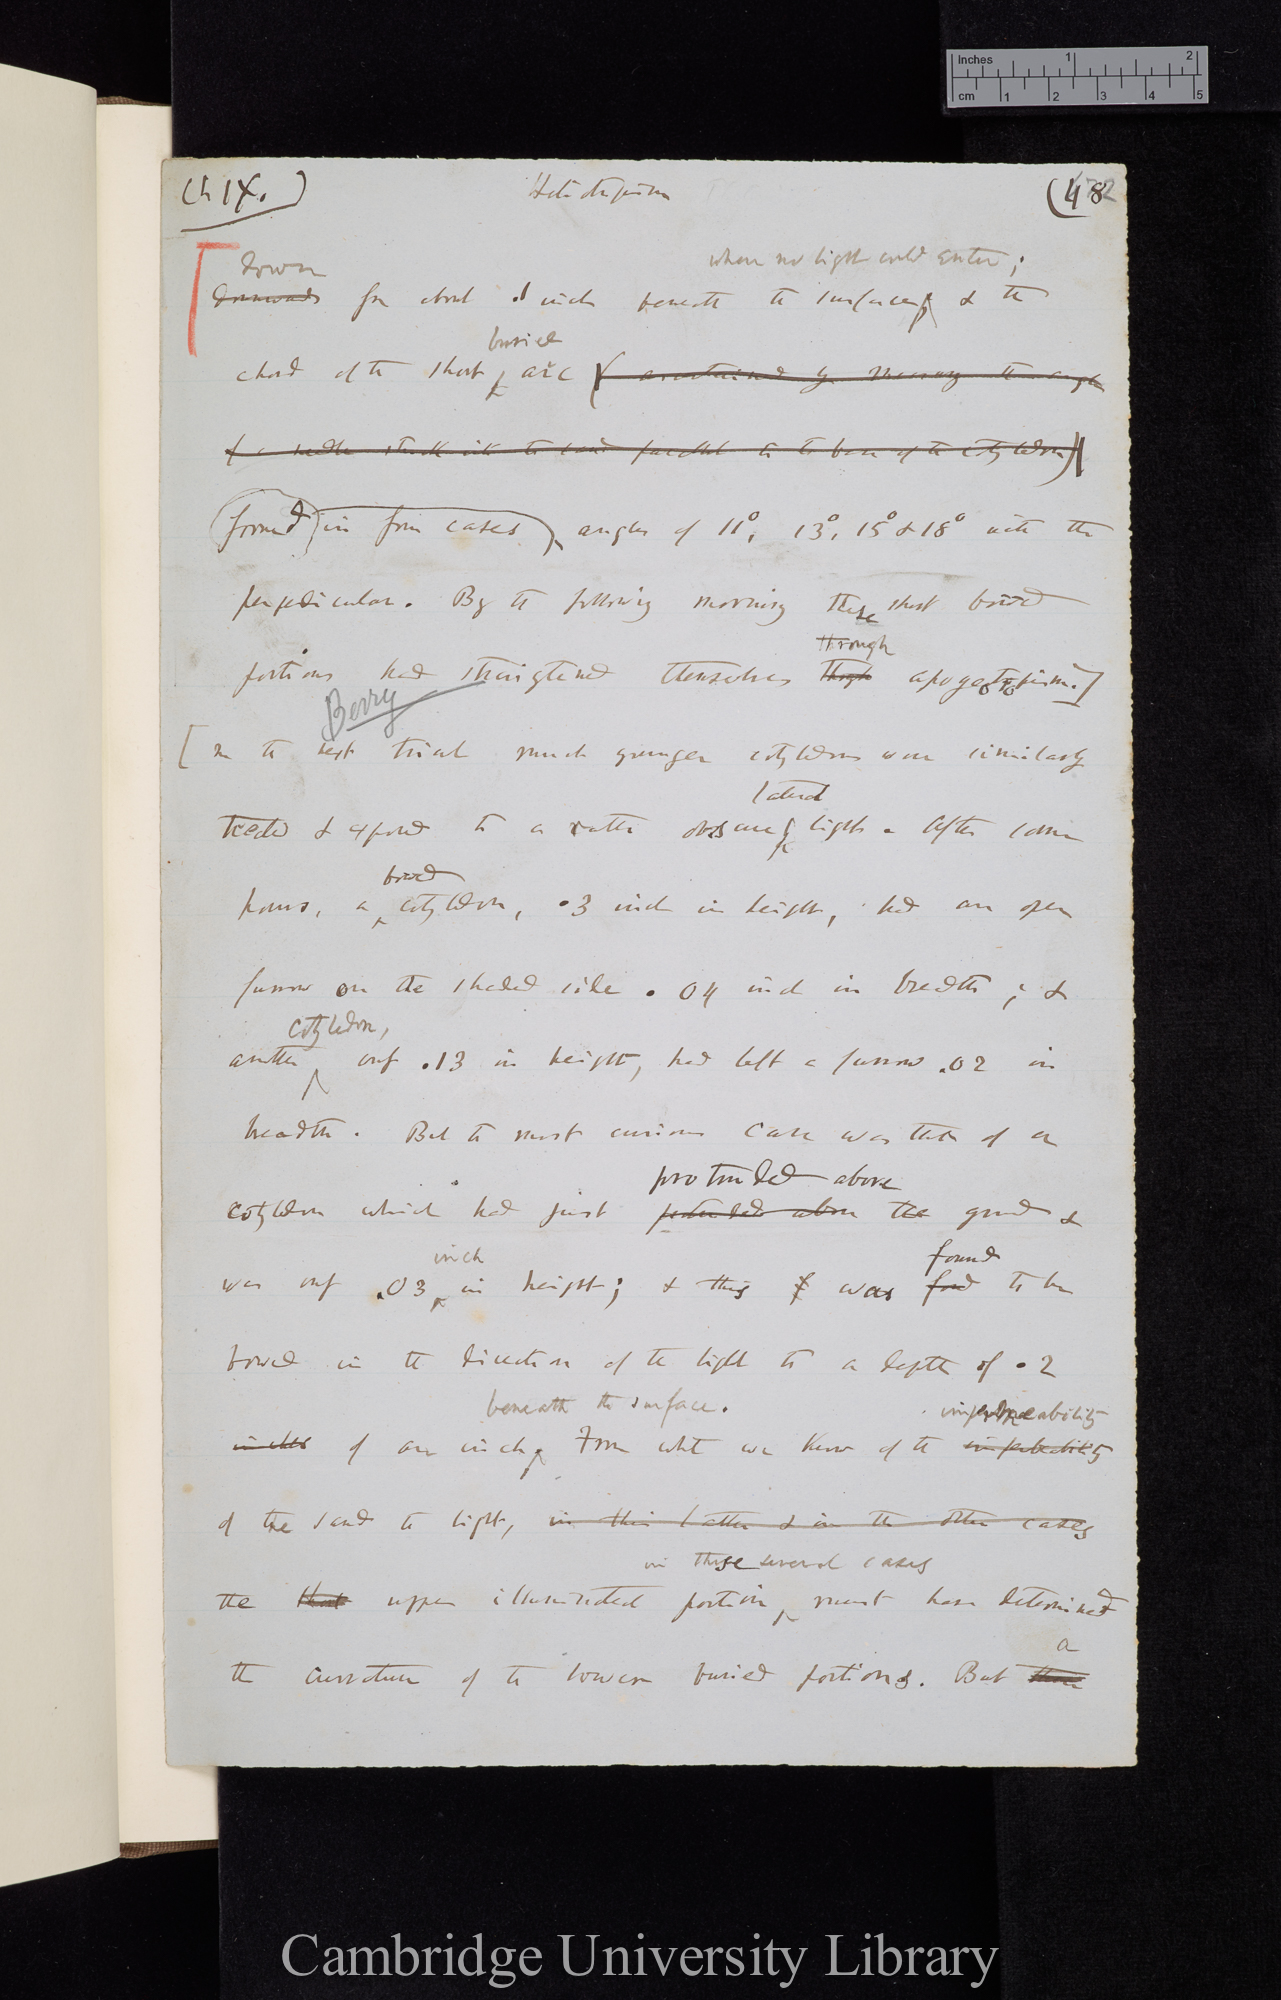 Inches 1 2
cm 1 2 3 4 5
Ch IX.) Heliotropism (48
down where no light could enter;
downwards for about .1 inch beneath the surface, & the
buried
chord of the short arc ( ascertained by means through
of a needle stuck into the sand parallel to the base of the cotyledon)
formed in four cases angles of 11°, 13°, 15° & 18° with the
perpendicular. By the following morning these short bowed
through
portions had straightened themselves through apogeotropism.]
Berry
[In the next trial much younger cotyledons were similarly
lateral
treated & exposed to a rather obscure light. After some
bowed
hours, a cotyledon, .3 inch in height, had an open
furrow on the shaded side .04 inch in breadth; &
cotyledon,
another only .13 in height, had left a furrow .02 in
breadth. But the most curious case was that of a
protruded above
cotyledon which had just protruded above the ground &
inch found
was only .03 in height; & this was found to be
bowed in the direction of the light to a depth of .2
beneath the surface. impermeability
inches of an inch From what we know of the impermeability
of the sand to light, in this latter & in the other cases
in these several cases
the that upper illuminated portion, must have determined
a
the curvature of the lower buried portions. But there
Cambridge University Library